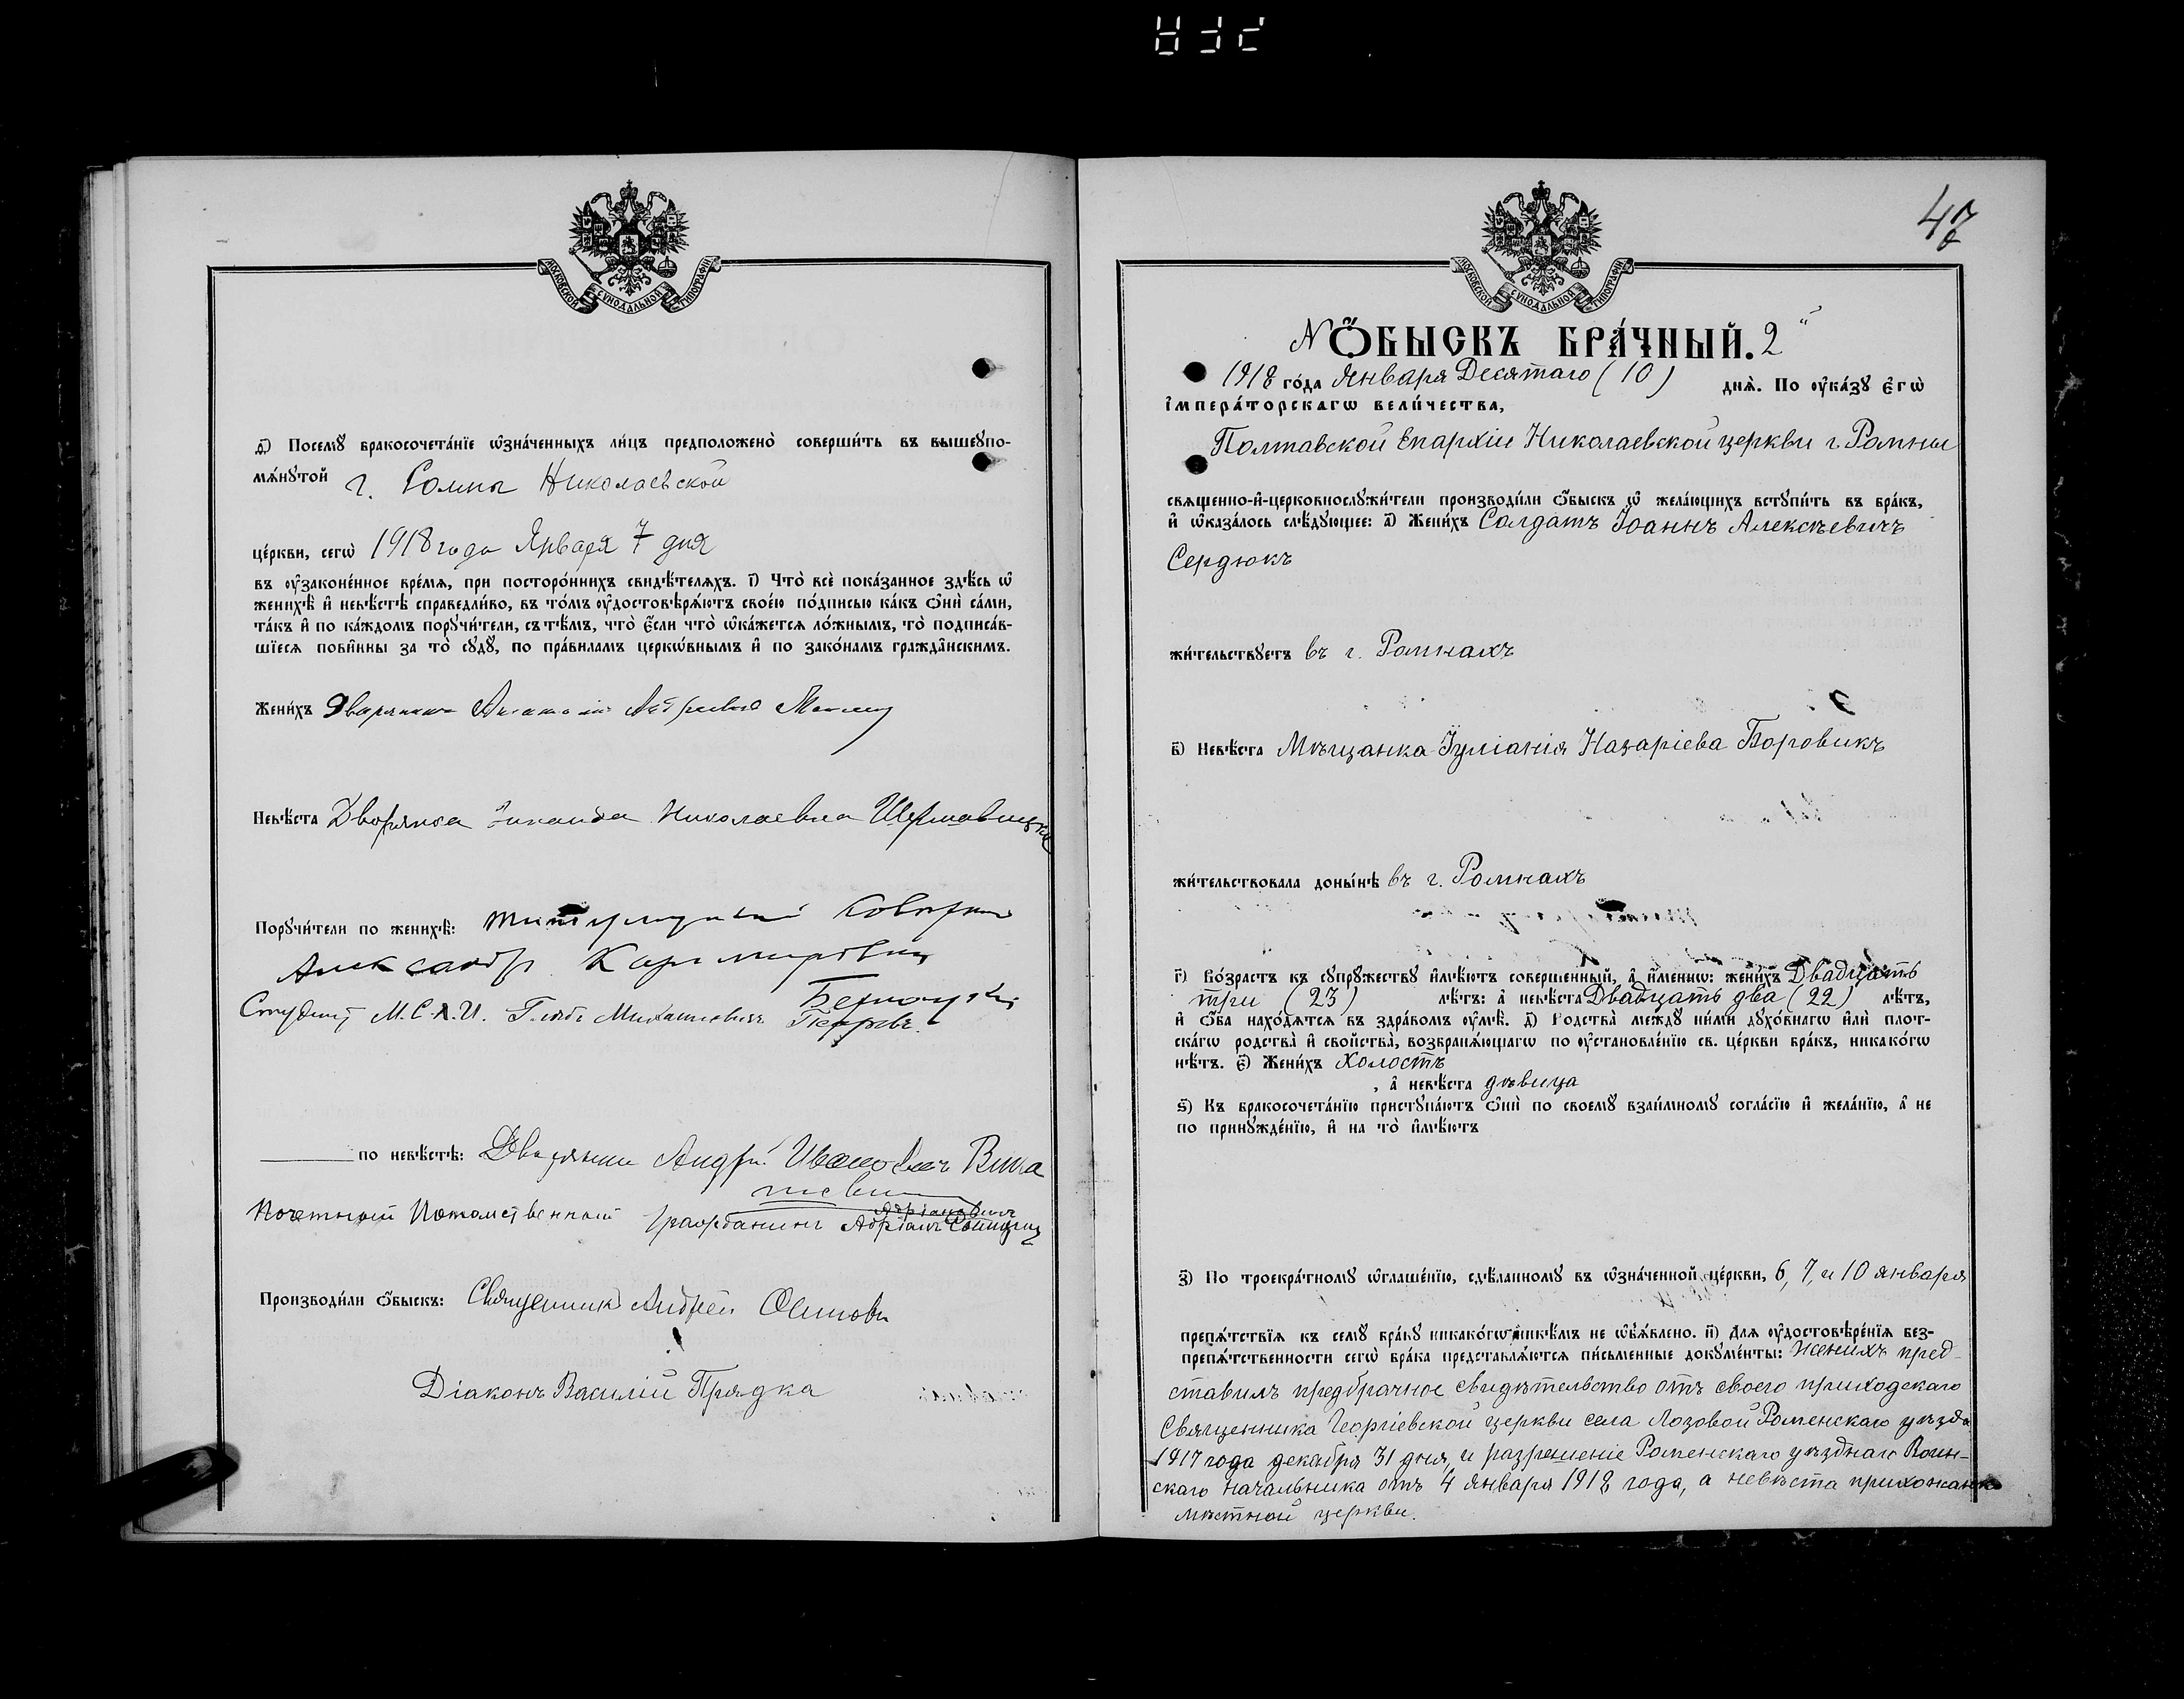 МОСКОВСКОЙ СУНОДАЛЬНОЙ ТИПОГРАФИИ
д҃) Посемꙋ бракосочета́нїе ѡ҆зна́ченныхъ ли́цъ предположено̀ соверши́ть въ вышеꙋпо-
мѧ́нꙋтой г. Ромна Николаевской
це́ркви, сегѡ̀ 1918 года Января 7 дня
въ ᲂу҆законе́нное вре́мѧ, при посторо́ннихъ свидѣ́телѧхъ. і҃) Что̀ всѐ пока́занное здѣ́сь ѡ҆
женихѣ̀ и҆ невѣ́стѣ справедли́во, въ то́мъ ᲂу҆достовѣрѧ́ютъ свое́ю по́дписью ка́къ ѻ҆нѝ са́ми,
та́къ и҆ по ка́ждомъ порꙋчи́тели, съ тѣ́мъ, что̀ є҆́сли что̀ ѡ҆ка́жетсѧ ло́жнымъ, то̀ подписа́в-
шїесѧ пови́нны за то̀ сꙋдꙋ̀, по пра́виламъ церко́внымъ и҆ по зако́намъ гражда́нскимъ.
Жени́хъ Дворянинъ
Невѣ́ста Дворянка Зинаида Николаевна
Порꙋчи́тели по женихѣ̀: титулярный
Александр
Студент М.С.Х.И. Глѣбъ Михаиловичъ
по невѣ́стѣ: Дворянин Андрей Иванович
Почетный Потомственный гражданинъ Адріанъ
Адріановичъ
Производи́ли ѻ҆́быскъ: Священник Андрей
Діаконъ Василій Прядка
МОСКОВСКОЙ СУНОДАЛЬНОЙ ТИПОГРАФИИ
47
N Ѻ҆́БЫСКЪ БРА́ЧНЫЙ. 2
1918 го́да Января Десятаго (10) днѧ̀. По ᲂу҆ка́зꙋ є҆гѡ̀
і҆мпера́торскагѡ вели́чества,
Полтавской Епархіи Николаевской церкви г. Ромны
свѧщенно-и҆-церковнослꙋжи́тели производи́ли ѻ҆́быскъ ѡ҆ жела́ющихъ встꙋпи́ть въ бра́къ,
и҆ ѡ҆каза́лось слѣ́дꙋющее: а҃) Жени́хъ Солдатъ Іоаннъ Алексѣевичъ
Сердюкъ
жи́тельствꙋетъ въ г. Ромнахъ
в҃) Невѣ́ста Мѣщанка Іуліанія Назаріева Боровикъ
жи́тельствовала доны́нѣ въ г. Ромнахъ
г҃) Во́зрастъ къ сꙋпрꙋ́жествꙋ и҆мѣ́ютъ соверше́нный, а҆ и҆́менно: жени́хъ Двадцать
три (23) лѣ́тъ: а҆ невѣ́ста Двадцать два (22) лѣ́тъ,
и҆ ѻ҆́ба нахо́дѧтсѧ въ здра́вомъ ᲂу҆мѣ̀. д҃) Родства̀ междꙋ̀ ни́ми дꙋхо́внагѡ и҆лѝ пло́т-
скагѡ родства̀ и҆ свойства̀, возбранѧ́ющагѡ по ᲂу҆становле́нїю св. це́ркви бра́къ, никако́гѡ
нѣ́тъ. є҃) Жени́хъ холостъ
, а҆ невѣ́ста дѣвица
ѕ҃) Къ бракосочета́нїю пристꙋпа́ютъ ѻ҆нѝ по своемꙋ̀ взаи́мномꙋ согла́сїю и҆ жела́нїю, а҆ не
по принꙋжде́нїю, и҆ на то̀ и҆мѣ́ютъ
з҃) По троекра́тномꙋ ѡ҆глаше́нїю, сдѣ́ланномꙋ въ ѡ҆зна́ченной це́ркви, 6, 7, и 10 января
препѧ́тствїѧ къ семꙋ̀ бра́кꙋ никако́гѡ никѣ́мъ не ѡ҆б̾ѧ́влено. и҃) Для ᲂу҆достовѣре́нїѧ без-
препѧ́тственности сегѡ̀ бра́ка представлѧ́ютсѧ пи́сьменные докꙋме́нты: Женихъ пред-
ставилъ предбрачное свидѣтельство отъ своего приходскаго
Священника Георгіевской церкви села Лозовой Роменскаго уѣзда
1917 года декабря 31 дня, и разрешеніе Роменскаго уѣзднаго Воин-
скаго Начальника отъ 4 Января 1918 года, а невѣста прихожанка
мѣстной церкви.